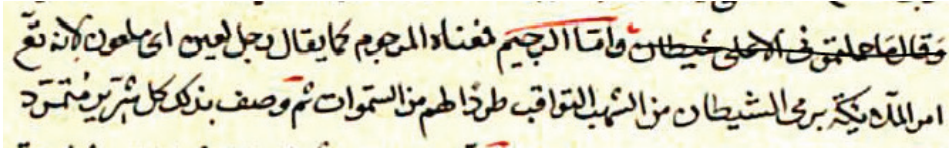 وقال ها حملتمو فى الاعلى شيطان واما الرجيم فمعناه المرجوم كما يقال رجل لعين اى ملعون لانه تع
امر الملائكة برمى الشيطان من الشهب الثواقب طردا لهم من السموات ثم وصف بذلك كل شرير متمرد